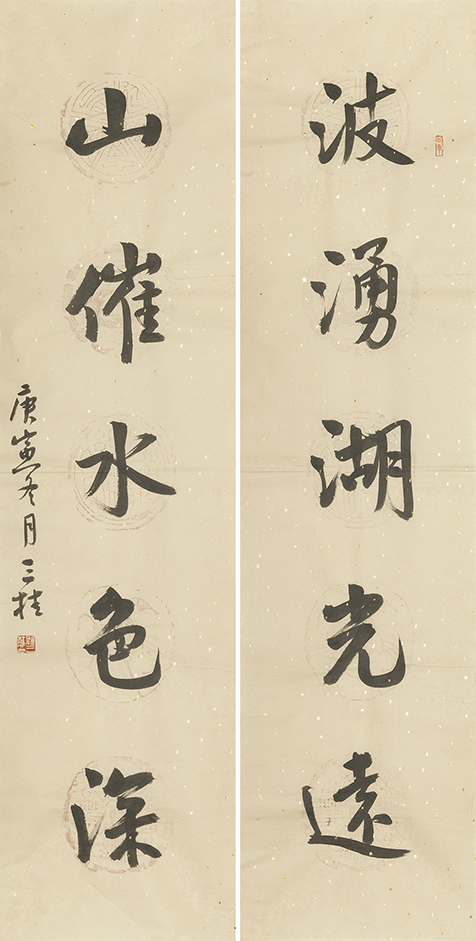 波湧湖光遠
山催水色深
庚寅冬月三桂